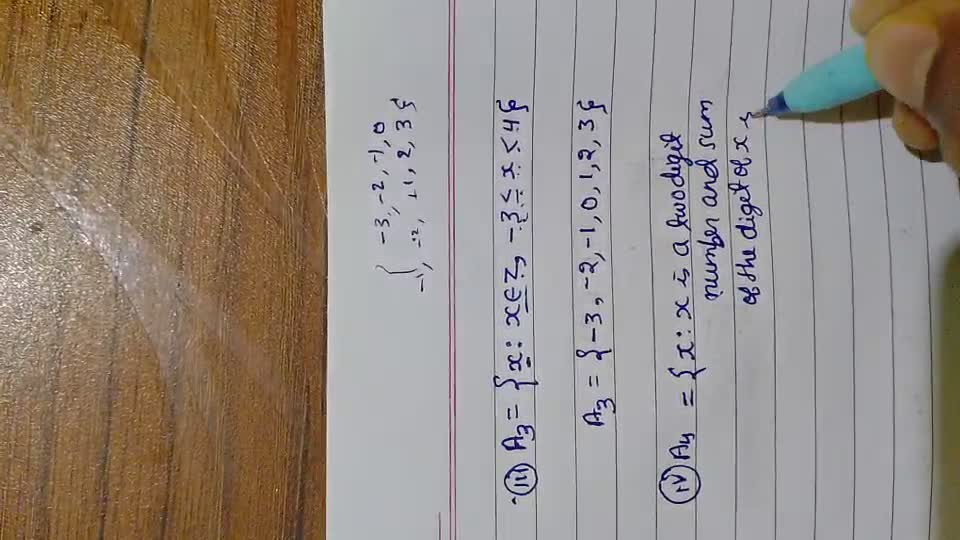 { -3, -2, -1, 0
-1, -2, +1, 2, 3 }
(iii) A3 = { x : x ∈ Z, -3 ≤ x < 4 }
A3 = { -3, -2, -1, 0, 1, 2, 3 }
(iv) A4 = { x : x is a two digit
number and sum
of the diget of x is